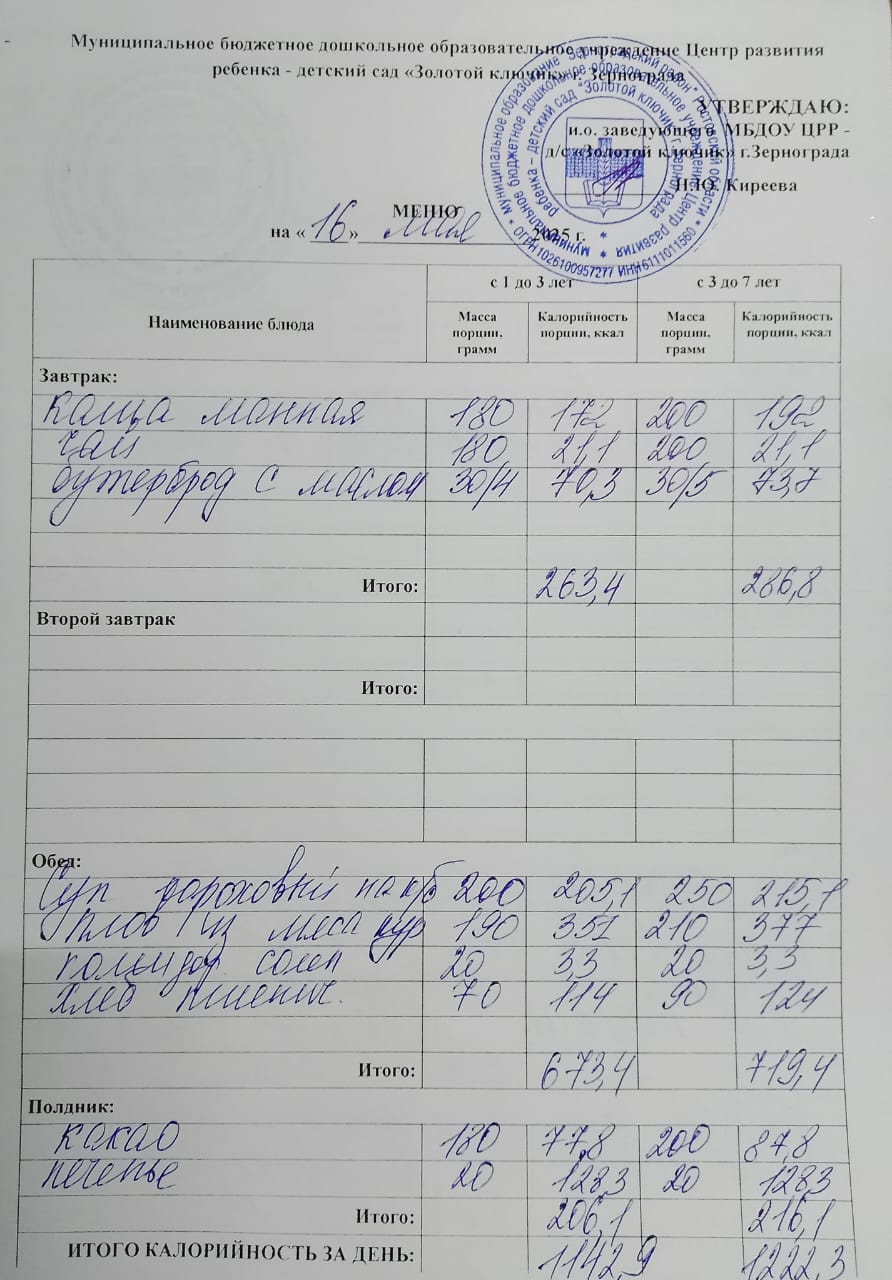 Муниципальное бюджетное дошкольное образовательное учреждение Центр развития
ребенка - детский сад «Золотой ключик» г. Зернограда
УТВЕРЖДАЮ:
и.о. заведующего МБДОУ ЦРР -
д/с «Золотой ключик» г.Зернограда
Н.Ю. Киреева
МЕНЮ
на « 16 » мая 2025 г.
Муниципальное образование "Зерноградский район" Ростовской области * ОГРН 1026100957277 ИНН 6111011560 *
муниципальное бюджетное дошкольное образовательное учреждение Центр развития
ребенка - детский сад "Золотой ключик" г. Зернограда
Наименование блюда с 1 до 3 лет с 3 до 7 лет
Масса порции, грамм Калорийность порции, ккал Масса порции, грамм Калорийность порции, ккал
Завтрак:
Каша манная 180 172 200 192
чай 180 21,1 200 21,1
бутерброд с маслом 30/4 70,3 30/5 73,7
Итого: 263,4 286,8
Второй завтрак
Итого:
Обед:
Суп гороховый на к/б 200 205,1 250 215,1
плов из мяса кур 190 351 210 377
помидор солен 20 3,3 20 3,3
хлеб пшенич. 70 114 90 124
Итого: 673,4 719,4
Полдник:
какао 180 77,8 200 87,8
печенье 20 128,3 20 128,3
Итого: 206,1 216,1
ИТОГО КАЛОРИЙНОСТЬ ЗА ДЕНЬ: 1142,9 1222,3